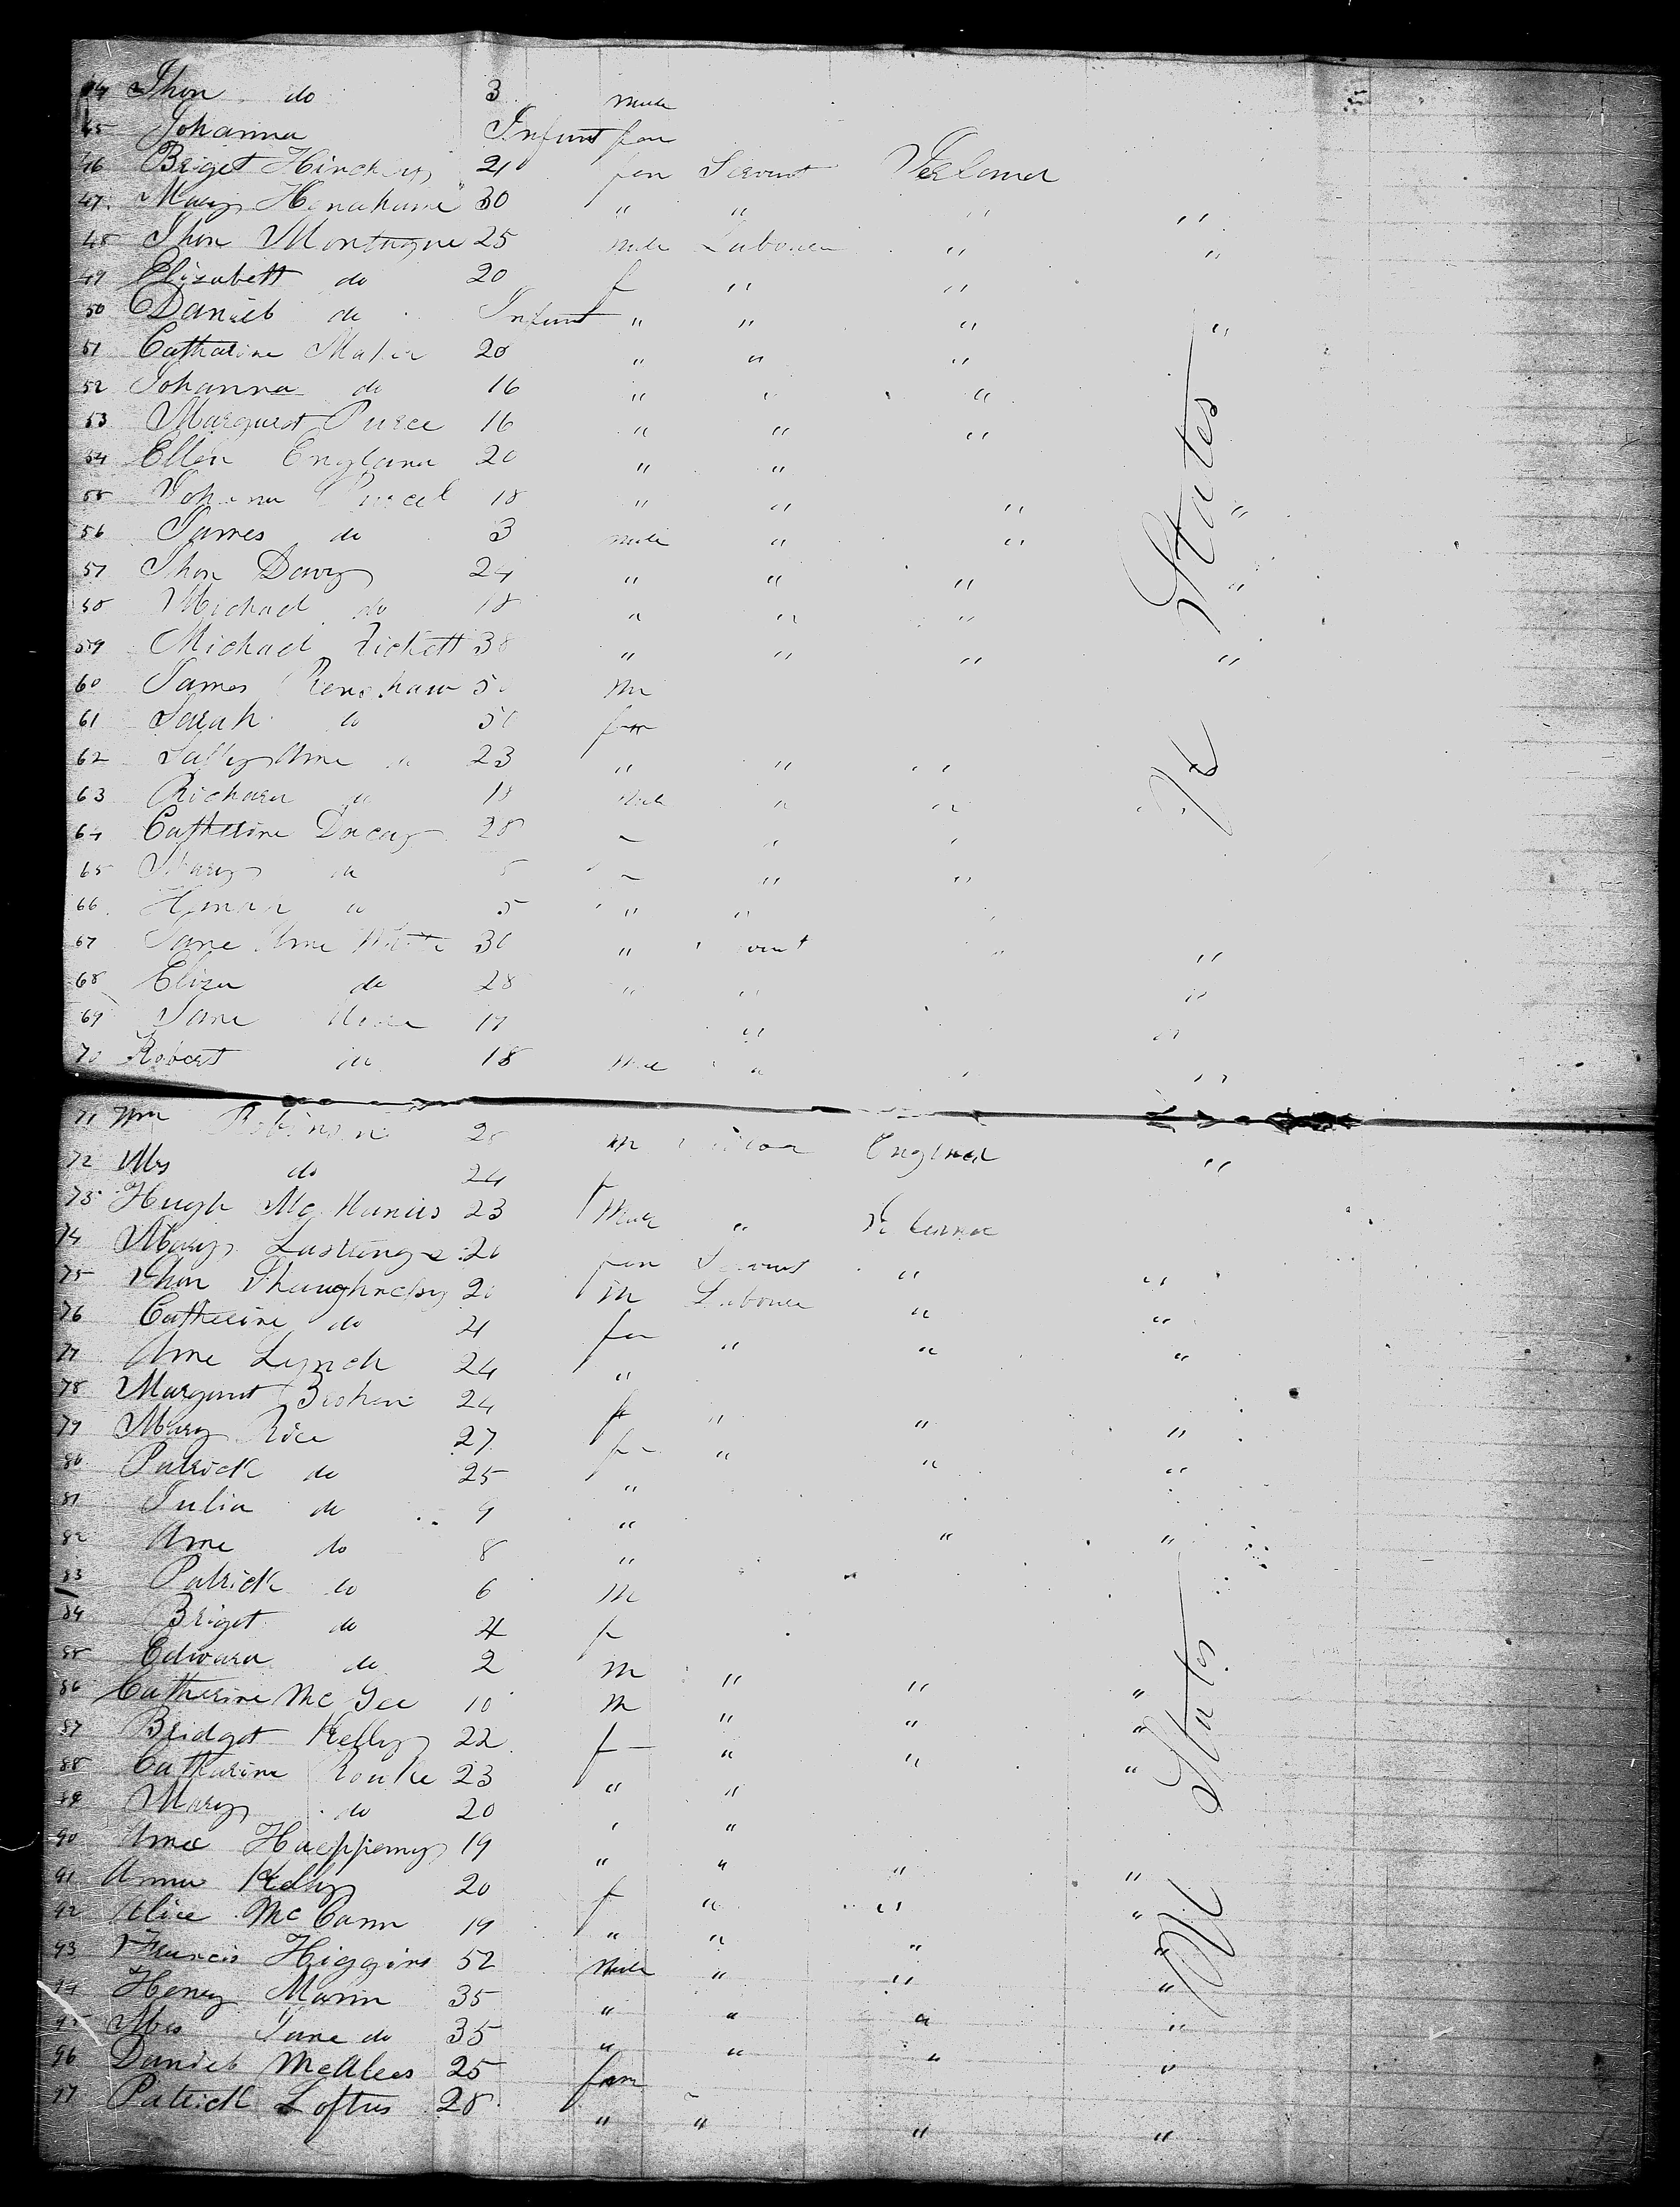 44 Jhon do 3 male
45 Johanna Infant fem
46 Briget 21 fem Servant Irelaned
47 Mary Henahane 30 " " " "
48 Jhon Montague 25 male Labourer " "
49 Elizabett do 20 f " "
50 Daniel do Infant " " " "
51 Catharine Maher 20 " " "
52 Johanna do 16 " " "
53 Margaret Purce 16 " " "
54 Ellen England 20 " "
55 Johana Purcel 18 " " " "
56 James do 3 male " "
57 Jhon Davy 24 " " " "
58 Michael do 18 " " "
59 Michael Fickett 38 " " " "
60 James Renshaw m
61 Sarah do 50 fem
62 Sally Ame " 23 " " "
63 Richard do 18 male " "
64 Catherine Dacey 28 " "
65 Mary do 5 " "
66 do 5 " "
67 Jane Ame White 30 " "
68 Eliza do 28 " " "
69 Jane 19 " "
70 Robert do 18 male " "
U States
71 Wm Robinson 28 m England
72 Mrs do 24 f "
73 Hugh McManus 23 male " Irelanned
74 Mary 20 fem Servant " "
75 Jhon Shaughnesy 20 m Labourer " "
76 Catherine do 4 fem " " "
77 Ame Lynch 24 "
78 Margaret 24 f " " "
79 Mary Rice 27 f " " "
80 Patrick do 25 "
81 Julia do 9 "
82 Ame do 8 " " "
83 Patrick do 6 m
84 Briget do 4 f
85 Edward do 2 m " " "
86 Catherine McGee 10 m " " "
87 Bridget Kelly 22 f " " "
88 Catharine Rourke 23 " "
89 Mary do 20 " "
90 Ame Haeppeny 19 " " " "
91 Anna Kelly 20 f " " "
92 Alice McCann 19 " " " "
93 Francis Higgins 52 male " " "
94 Henry Mann 35 " " " "
95 Mrs Jane do 35 " " " "
96 Daniel McAlees 25 fem
97 Patrick Loftus 28 " " " "
U States